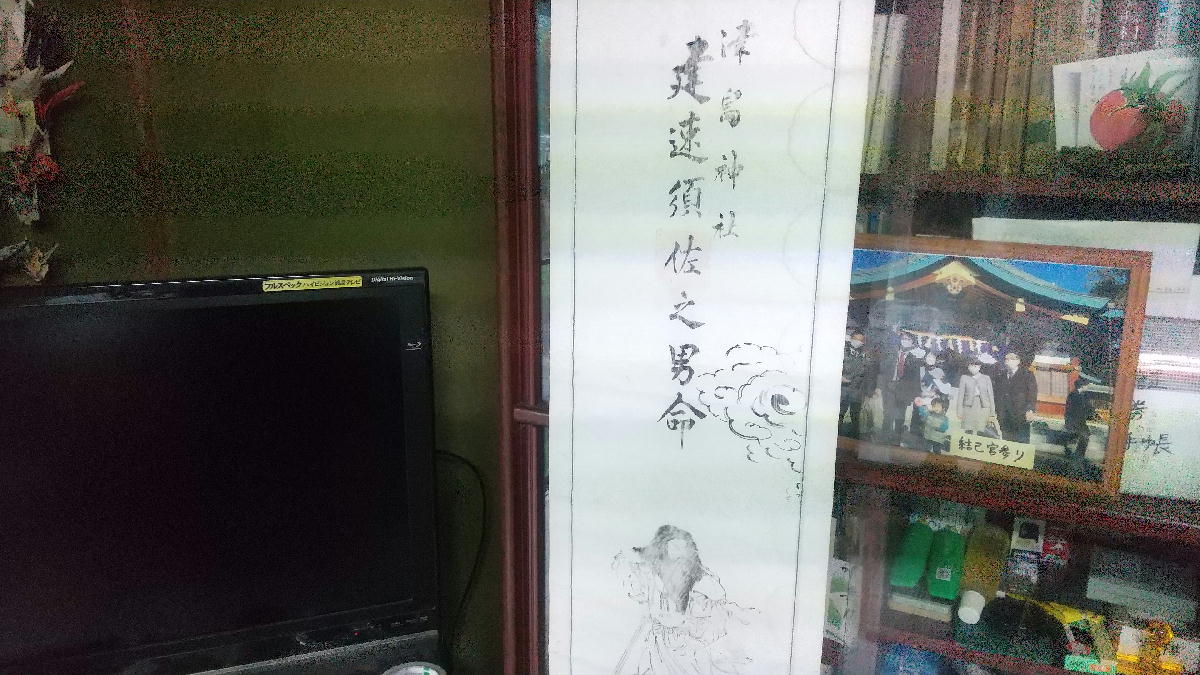 津島神社
建速須佐之男命
フルスペック ハイビジョン液晶テレビ
Digital Hi-Vision
結己宮参り
手帳